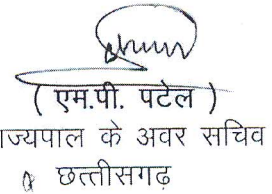 ( एम.पी. पटेल )
ज्यपाल के अवर सचिव
छत्तीसगढ़